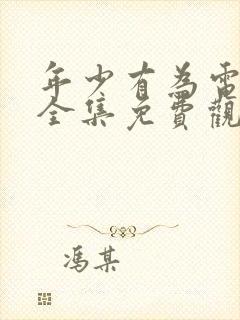 年少有為電
全集免費觀
馮某